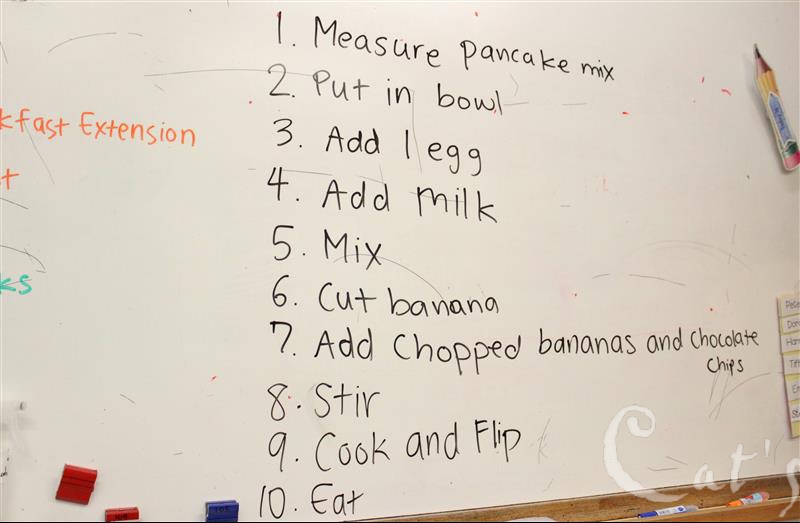 1. Measure pancake mix
2. Put in bowl
3. Add 1 egg
4. Add milk
5. Mix
6. Cut banana
7. Add Chopped bananas and Chocolate
Chips
8. Stir
9. Cook and Flip
10. Eat
Extension
Cat's